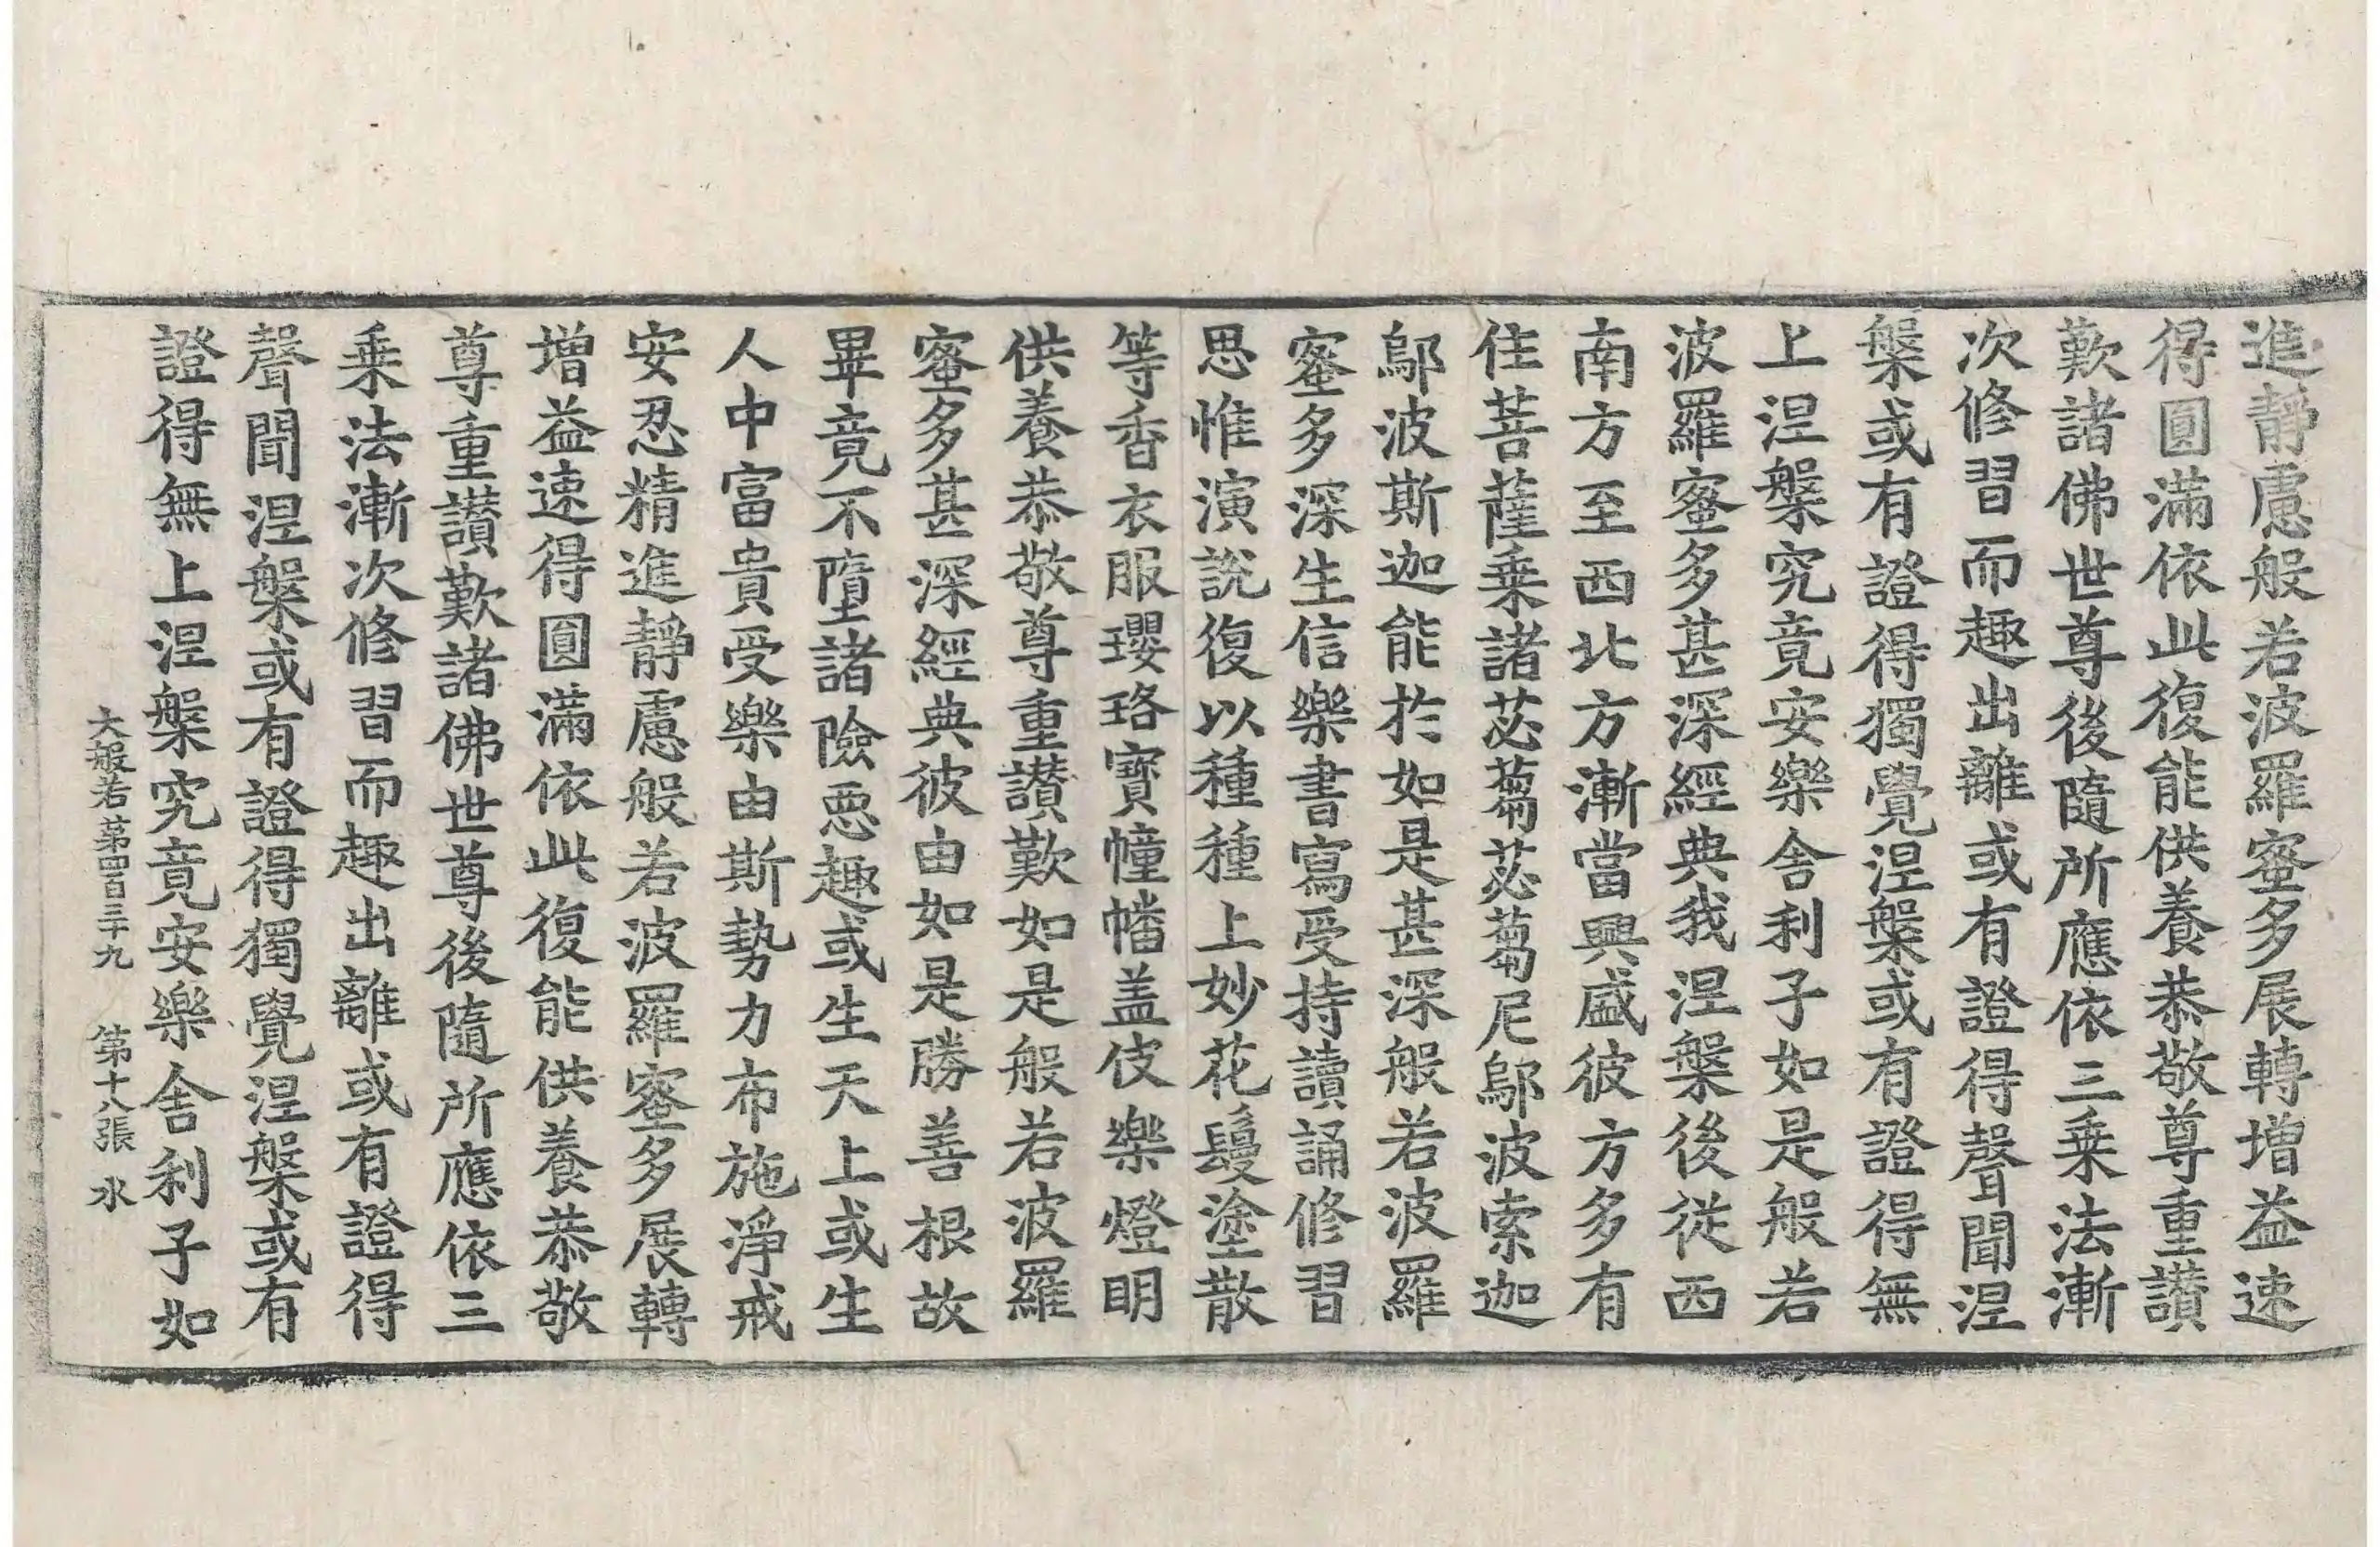 進靜慮般若波羅蜜多展轉增益速
得圓滿依此復能供養恭敬尊重讃
歎諸佛世尊後隨所應依三乗法漸
次修習而趣出離或有證得聲聞涅
槃或有證得獨覺涅槃或有證得無
上涅槃究竟安樂舍利子如是般若
波羅蜜多甚深經典我涅槃後從西
南方至西北方漸當興盛彼方多有
住菩薩乗諸苾蒭苾蒭尼鄔波索迦
鄔波斯迦能於如是甚深般若波羅
蜜多深生信樂書寫受持讀誦修習
思惟演說復以種種上妙花鬘塗散
等香衣服瓔珞寶幢幡盖伎樂燈明
供養恭敬尊重讃歎如是般若波羅
蜜多甚深經典彼由如是勝善根故
畢竟不墮諸險惡趣或生天上或生
人中富貴受樂由斯勢力布施淨戒
安忍精進靜慮般若波羅蜜多展轉
增益速得圓滿依此復能供養恭敬
尊重讃歎諸佛世尊後隨所應依三
乗法漸次修習而趣出離或有證得
聲聞涅槃或有證得獨覺涅槃或有
證得無上涅槃究竟安樂舍利子如
大般若第四百三十九 第十八張 水